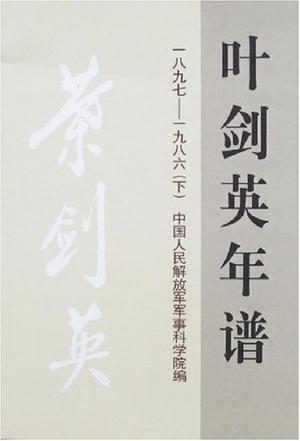 叶剑英年谱
一八九七——一九八六(下) 中国人民解放军军事科学院编
葉剑英